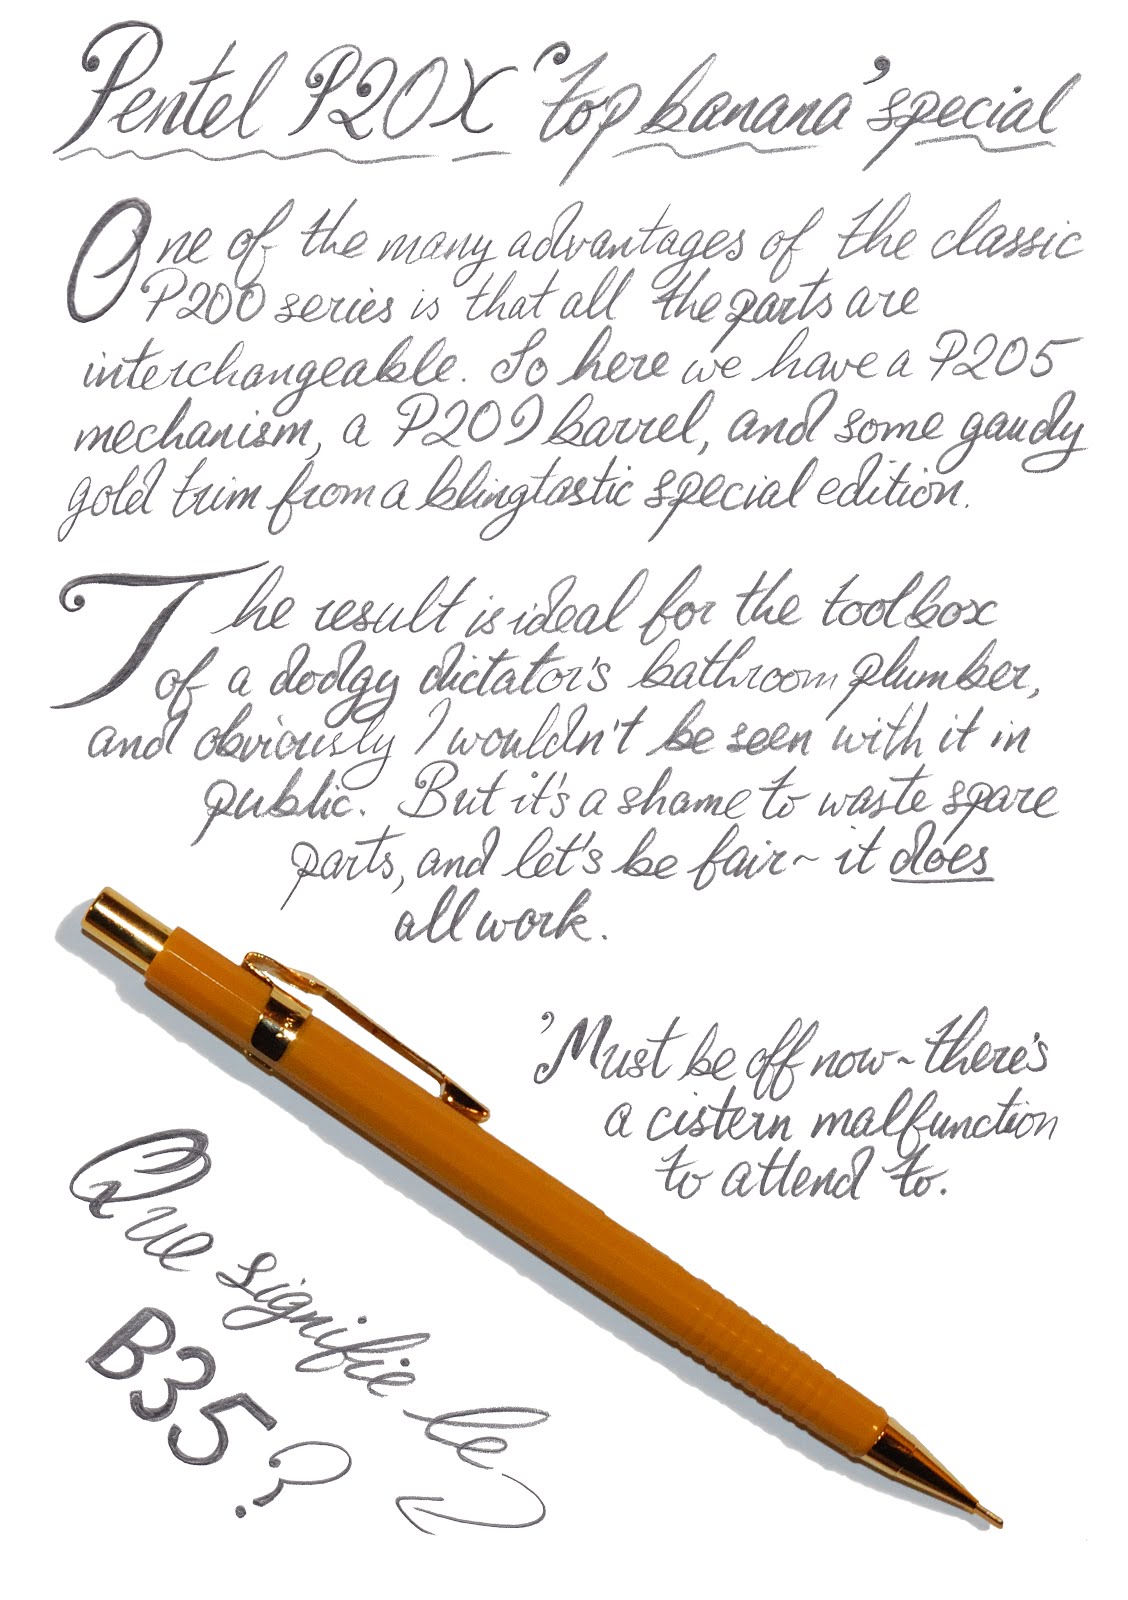 Pentel P20X 'top banana' special
One of the many advantages of the classic
P200 series is that all the parts are
interchangeable. So here we have a P205
mechanism, a P209 barrel, and some gaudy
gold trim from a blingtastic special edition.
The result is ideal for the toolbox
of a dodgy dictator's bathroom plumber,
and obviously I wouldn't be seen with it in
public. But it's a shame to waste spare
parts, and let's be fair~ it does
all work.
'Must be off now~ there's
a cistern malfunction
to attend to.
Que signifie le
B35?